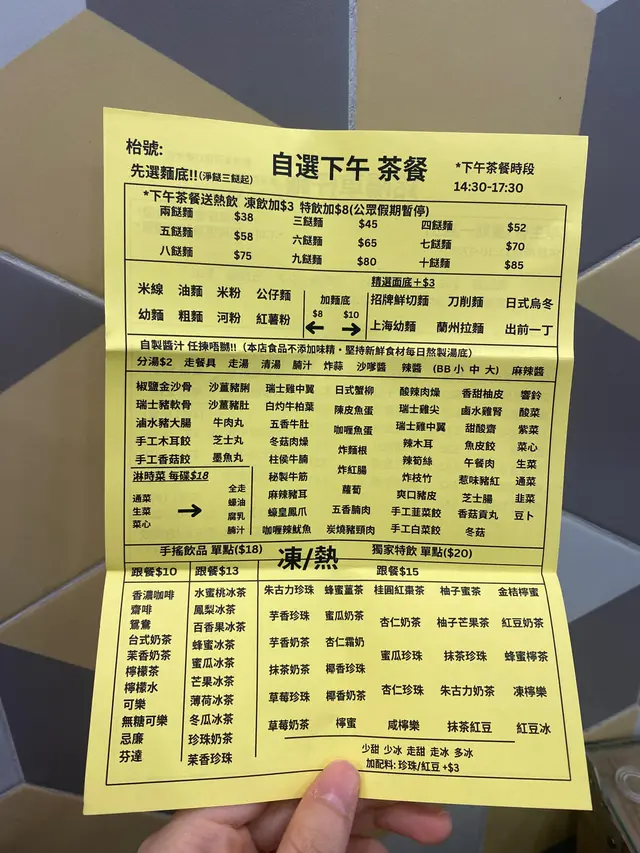 枱號:
自選下午 茶餐
*下午茶餐時段
14:30-17:30
先選麵底!!(淨餸三餸起)
*下午茶餐送熱飲 凍飲加$3 特飲加$8(公眾假期暫停)
兩餸麵 $38 三餸麵 $45 四餸麵 $52
五餸麵 $58 六餸麵 $65 七餸麵 $70
八餸麵 $75 九餸麵 $80 十餸麵 $85
精選面底+$3
米線 油麵 米粉 公仔麵
幼麵 粗麵 河粉 紅薯粉
加麵底
$8 $10
招牌鮮切麵 刀削麵 日式烏冬
上海幼麵 蘭州拉麵 出前一丁
自製醬汁 任揀唔嬲!! (本店食品不添加味精・堅持新鮮食材每日熬製湯底)
分湯$2 走餐具 走湯 清湯 腩汁 炸蒜 沙嗲醬 辣醬 (BB 小 中 大) 麻辣醬
椒鹽金沙骨 沙薑豬脷 瑞士雞中翼 日式蟹柳 酸辣肉燥 香甜柚皮 響鈴
瑞士豬軟骨 沙薑豬肚 白灼牛柏葉 陳皮魚蛋 瑞士雞尖 鹵水雞腎 酸菜
滷水豬大腸 牛肉丸 五香牛肚 咖喱魚蛋 瑞士雞中翼 甜酸齋 紫菜
手工木耳餃 芝士丸 冬菇肉燥 炸麵根 辣木耳 魚皮餃 菜心
手工香菇餃 墨魚丸 柱侯牛腩 炸紅腸 辣筍絲 午餐肉 生菜
秘製牛筋 蘿蔔 炸枝竹 惹味豬紅 通菜
麻辣豬耳 五香腩肉 爽口豬皮 芝士腸 韭菜
蠔皇鳳爪 炭燒豬頸肉 手工韮菜餃 香菇貢丸 豆卜
咖喱辣魷魚 手工白菜餃 冬菇
淋時菜 每碟$18
通菜
生菜
菜心
全走
蠔油
腐乳
腩汁
手搖飲品 單點($18)
凍/熱
獨家特飲 單點($20)
跟餐$10
香濃咖啡
齋啡
鴛鴦
台式奶茶
茉香奶茶
檸檬茶
檸檬水
可樂
無糖可樂
忌廉
芬達
跟餐$13
水蜜桃冰茶
鳳梨冰茶
百香果冰茶
蜂蜜冰茶
蜜瓜冰茶
芒果冰茶
薄荷冰茶
冬瓜冰茶
珍珠奶茶
茉香珍珠
跟餐$15
朱古力珍珠 蜂蜜薑茶 桂圓紅棗茶 柚子蜜茶 金桔檸蜜
芋香珍珠 蜜瓜奶茶 杏仁奶茶 柚子芒果茶 紅豆奶茶
芋香奶茶 杏仁霜奶 蜜瓜珍珠 抹茶珍珠 蜂蜜檸茶
抹茶奶茶 椰香珍珠 杏仁珍珠 朱古力奶茶 凍檸樂
草莓珍珠 椰香奶茶 咸檸樂 抹茶紅豆 紅豆冰
草莓奶茶 檸蜜
少甜 少冰 走甜 走冰 多冰
加配料: 珍珠/紅豆 +$3